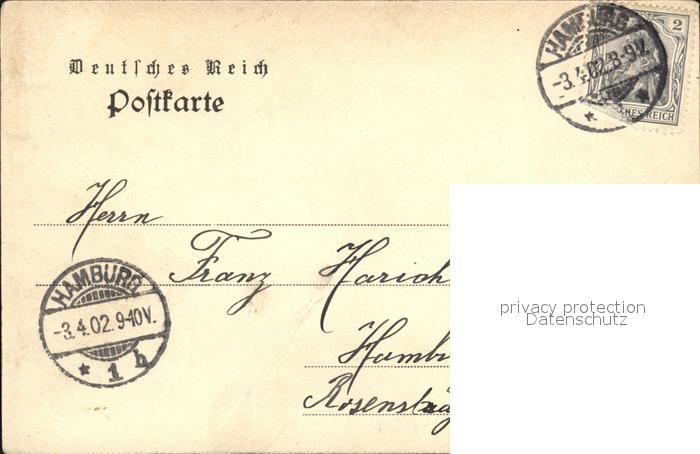 Deutsches Reich
Postkarte
HAMBURG
-3.4.02.8-9V.
*
2
DEUTSCHES REICH
Herrn
Franz Harich
Hamb
HAMBURG
-3.4.02.9-10V.
* 1 h
privacy protection
Datenschutz